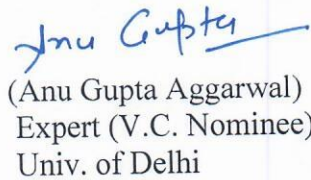 Anu Gupta
(Anu Gupta Aggarwal)
Expert (V.C. Nominee)
Univ. of Delhi